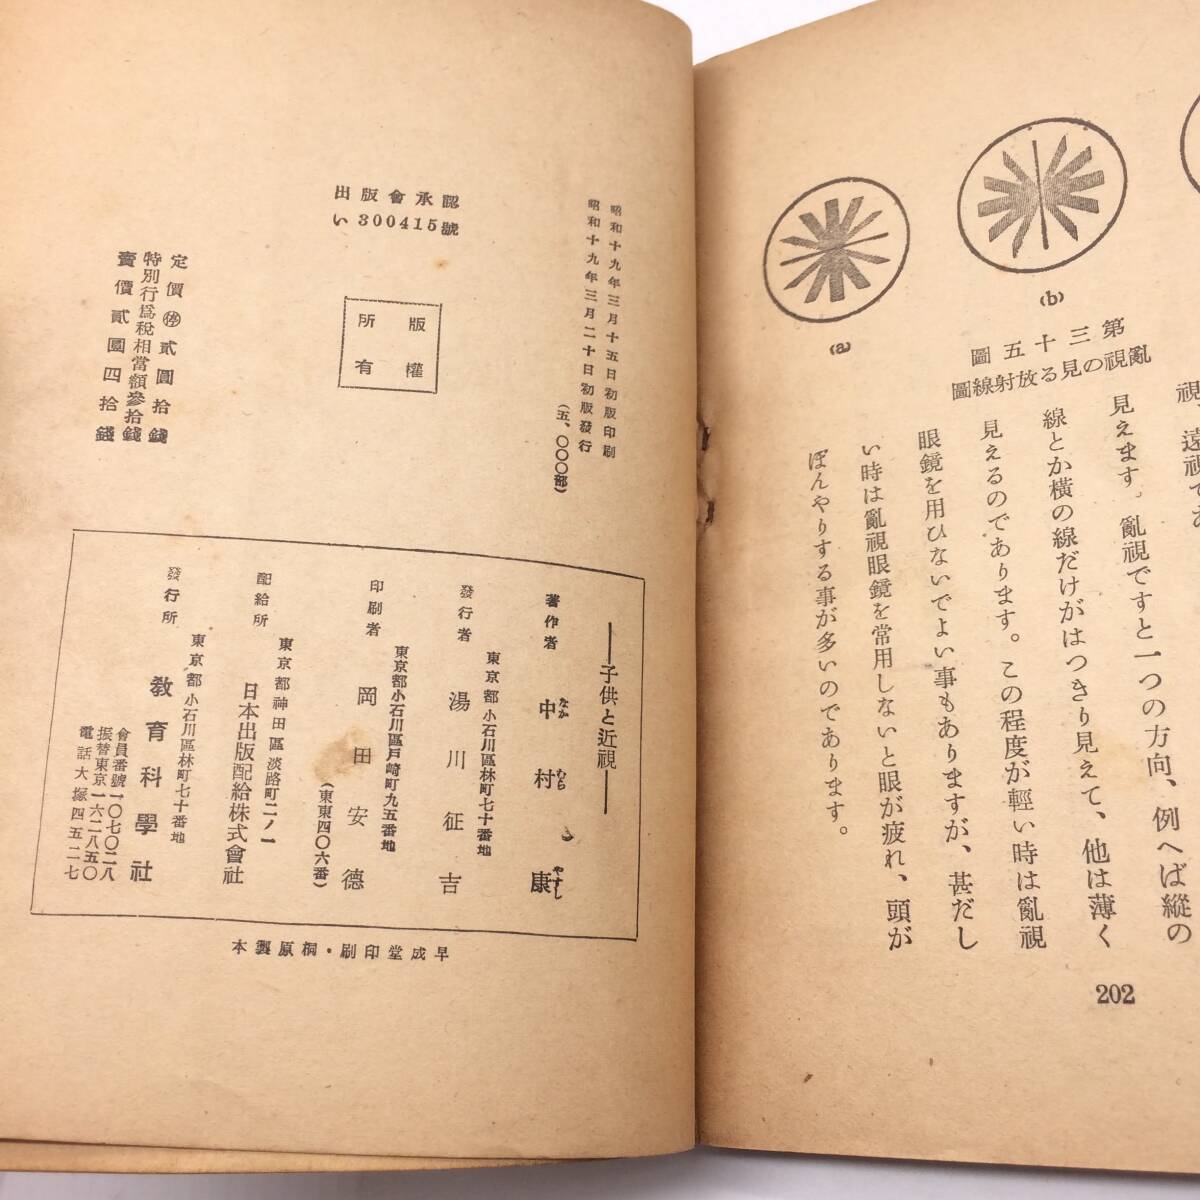 (b)
(a)
第三十五圖
亂視の見る放射線圖
視、遠視であ
見えます。亂視ですと一つの方向、例へば縱の
線とか橫の線だけがはつきり見えて、他は薄く
見えるのであります。この程度が輕い時は亂視
眼鏡を用ひないでよい事もありますが、甚だし
い時は亂視眼鏡を常用しないと眼が疲れ、頭が
ぼんやりする事が多いのであります。
202
昭和十九年三月十五日初版印刷
昭和十九年三月二十日初版發行
(五、〇〇〇部)
出版會承認
い300415號
版權
所有
定價㊡貳圓拾錢
特別行爲稅相當額參拾錢
賣價貳圓四拾錢
―子供と近視―
著作者 中村康
なか むら やすし
發行者 東京都小石川區林町七十番地
湯川征吉
印刷者 東京都小石川區戶崎町九五番地
岡田安德
(東東四〇六番)
配給所 東京都神田區淡路町二ノ一
日本出版配給株式會社
發行所 東京都小石川區林町七十番地
敎育科學社
會員番號一〇七〇二八
振替東京一六二八五〇
電話大塚四五二七
早成堂印刷・桐原製本